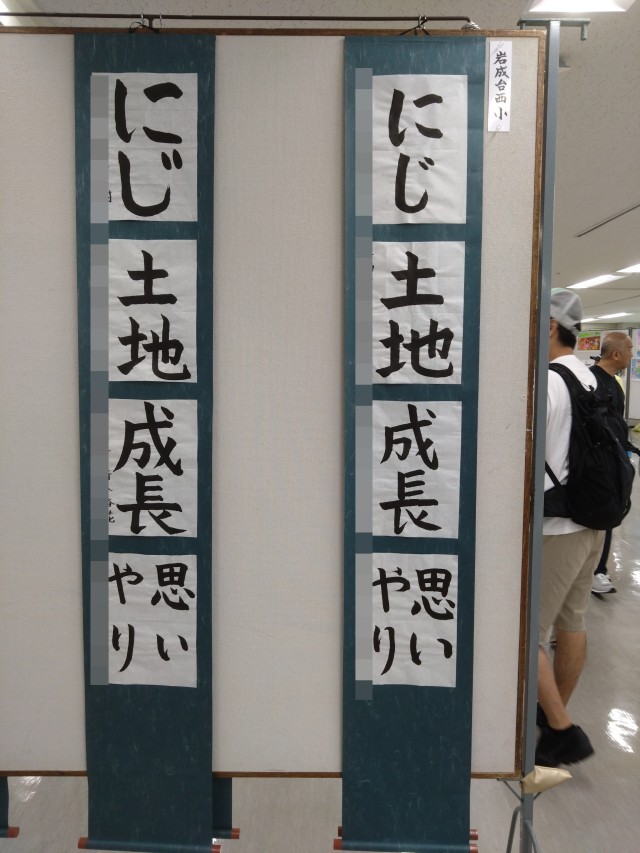 岩成台西小
にじ
土地
成長
思い
やり
にじ
土地
成長
思い
やり